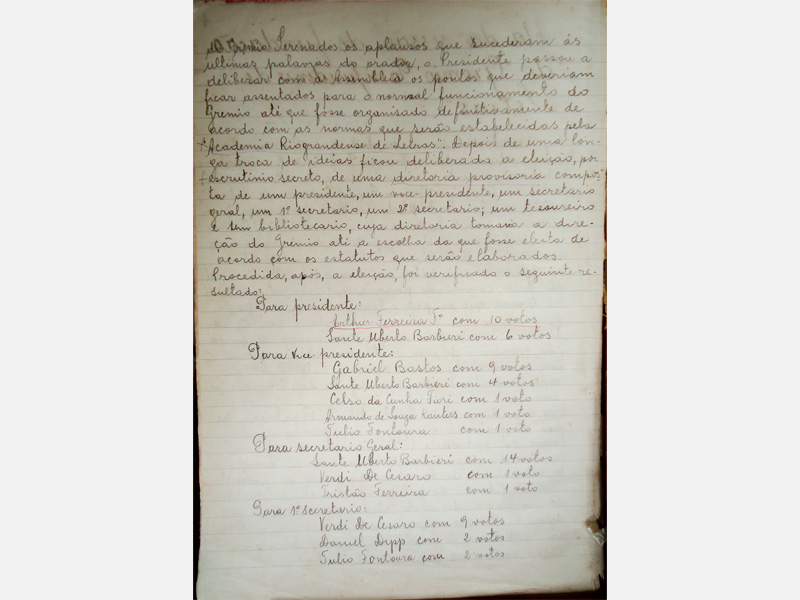 do Gremio. Serenados os aplausos que sucederam ás
ultimas palavras do orador, o Presidente passou a
deliberar com a Assembléa os pontos que deveriam
ficar assentados para o normal funcionamento do
Gremio até que fosse organisado definitivamente de
acordo com as normas que serão estabelecidas pela
"Academia Riograndense de Letras". Depois de uma lon-
ga troca de ideias ficou deliberada a eleição, por
escrutinio secreto, de uma diretoria provisoria compos-
ta de um presidente, um vice-presidente, um secretario
geral, um 1º secretario, um 2º secretario, um tesoureiro
e um bibliotecario, cuja diretoria tomaria a dire-
ção do Gremio até a escolha da que fosse eleita de
acordo com os estatutos que serão elaborados.
Procedida, após, a eleição, foi verificado o seguinte re-
sultado:
Para presidente:
Arthur Ferreira Fº com 10 votos
Sante Uberto Barbieri com 6 votos
Para vice presidente:
Gabriel Bastos com 9 votos
Sante Uberto Barbieri com 4 votos
Celso da Cunha Fiori com 1 voto
Armando de Souza Kanters com 1 voto
Tulio Fontoura com 1 voto
Para secretario Geral:
Sante Uberto Barbieri com 14 votos
Verdi De Cesaro com 1 voto
Tristão Ferreira com 1 voto
Para 1º secretario:
Verdi De Cesaro com 9 votos
Daniel Dipp com 2 votos
Tulio Fontoura com 2 votos